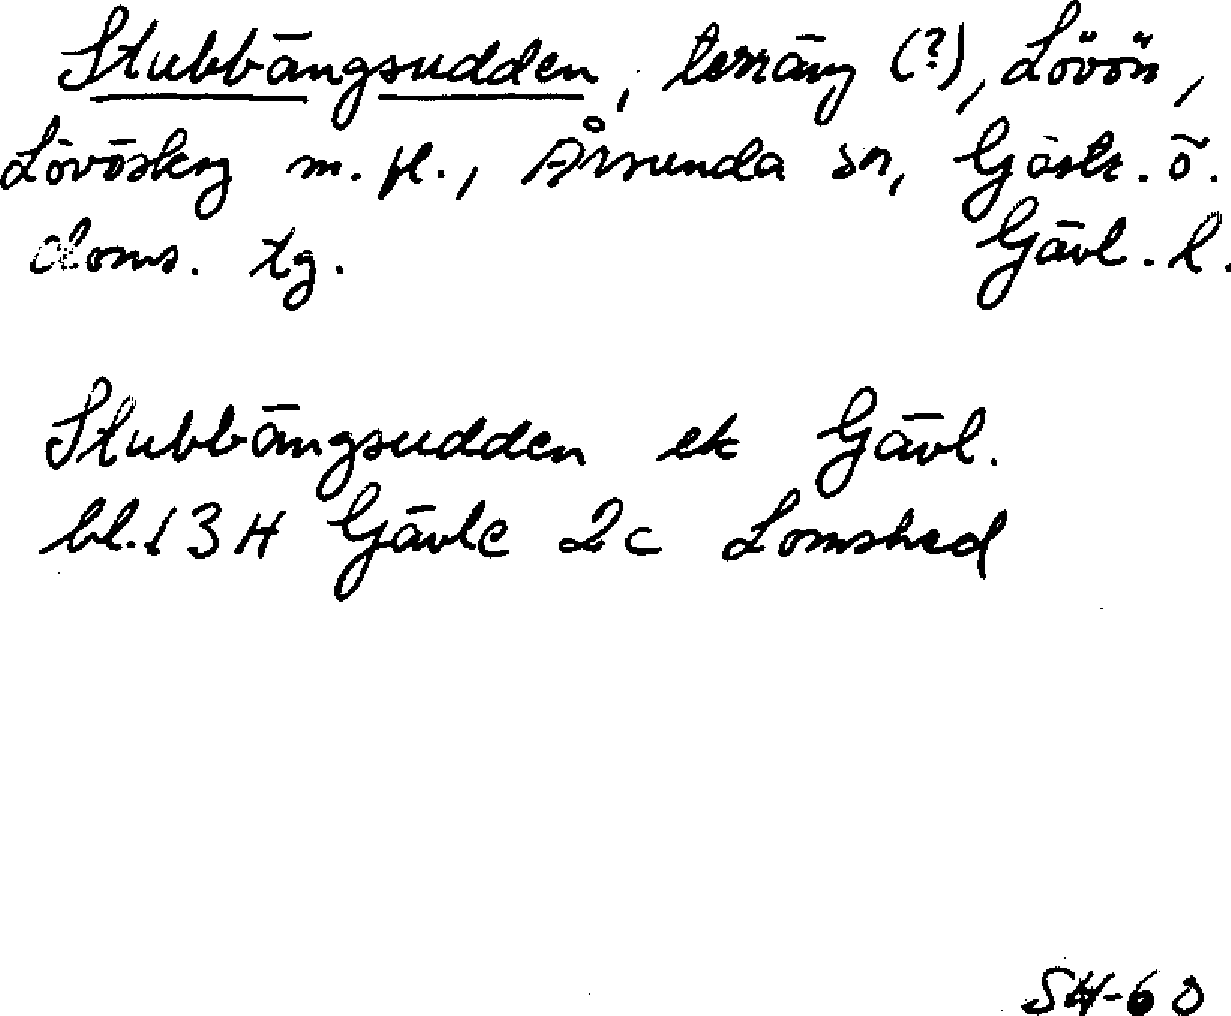 Stubbängsudden, terräng (?), Lövön,
Lövöskog m. fl., Årsunda sn, Gästr. ö.
doms. tg. Gävl. l.
Stubbängsudden ek Gävl.
bl. 13H Gävle 2c Lomshed
SH-60